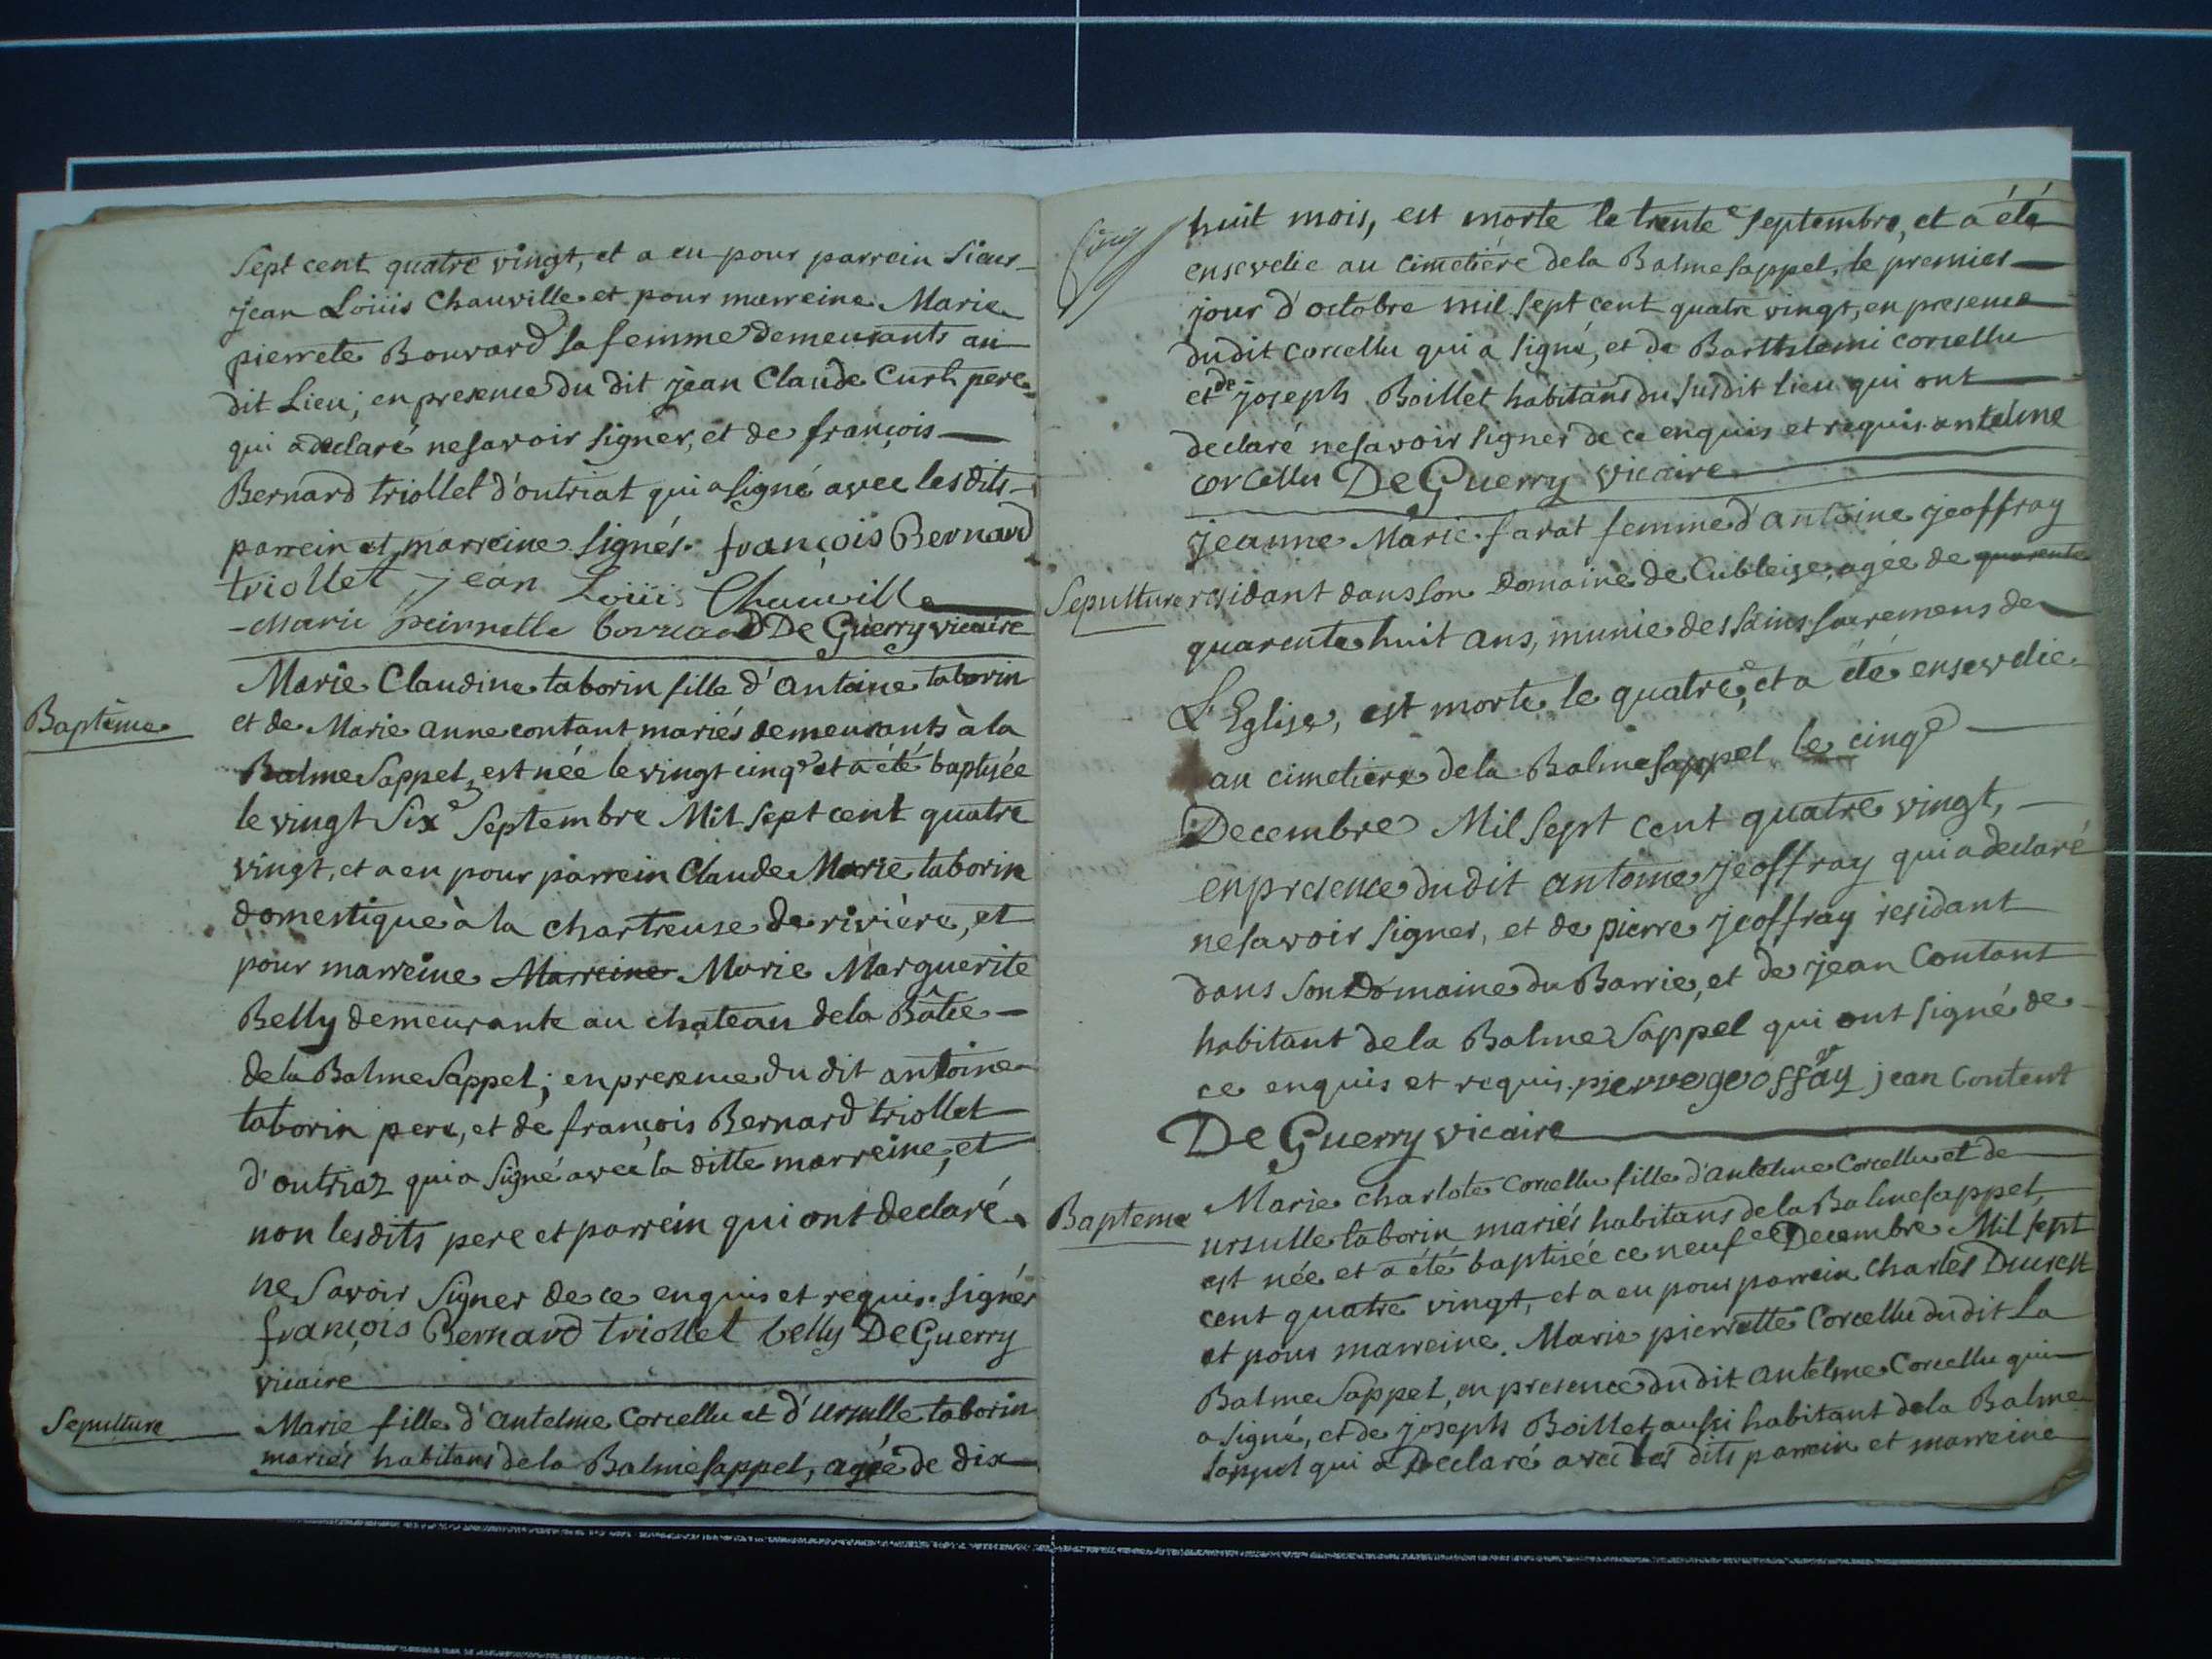 Sept cent quatre vingt, et a eu pour parrein Sieur
jean Loüis Chauville et pour marreine Marie
pierrete Bouvard sa femme demeurants au
dit Lieu; en presence du dit jean Claude Curt pere
qui a declaré ne savoir signer, et de françois
Bernard triollet d'outriat qui a signé avec les dits
parrein et marreine signés. françois Bernard
triollet jean Loüis Chauville
Marie peirrette bovard De Guerry vicaire
Baptême
Marie Claudine taborin fille d'Antoine taborin
et de Marie anne contant mariés demeurants à la
Balme Sappel, est née le vingt cinqe et a été baptisée
le vingt Sixe Septembre Mil sept cent quatre
vingt, et a eu pour parrein Claude Marie taborin
domestique à la chartreuse de rivière, et
pour marreine Marreine Marie Marguerite
Belly demeurante au chateau de la Bâtie
de la Balme Sappel; en presence du dit antoine
taborin pere, et de françois Bernard triollet
d'outriaz qui a signé avec la ditte marreine, et
non les dits pere et parrein qui ont declaré
ne savoir signer de ce enquis et requis. signés
françois Bernard triollet belly De Guerry
vicaire
Sepulture
Marie fille d'antelme Corcellu et d'ursulle taborin
mariés habitans de la Balme sappel, agée de dix
Cinq
huit mois, est morte le trentee septembre, et a été
ensevelie au cimetiére de la Balme sappel, le premier
jour d'octobre mil sept cent quatre vingt, en presence
du dit corcellu qui a signé, et de Barthelemi corcellu
et de joseph Boillet habitans du susdit lieu qui ont
declaré ne savoir signer de ce enquis et requis. antelme
corcellu De Guerry vicaire
Sepulture
jeanne Marie farat femme d'antoine jeoffray
residant dans son domaine de Cubleize, agée de quarente
quarente huit ans, munie des sains sacremens de
L'Eglise, est morte le quatree, et a été ensevelie
au cimetiere de la Balme sappel le cinqe
Decembre Mil sept cent quatre vingt,
en presence du dit antoine jeoffray qui a declaré
ne savoir signer, et de pierre jeoffray residant
dans son Domaine du Barrie, et de jean Contant
habitant de la Balme Sappel qui ont signé de
ce enquis et requis. pierre geoffray jean Content
De Guerry vicaire
Bapteme
Marie charlote Corcellu fille d'antelme Corcellu et de
ursulle taborin mariés habitans de la Balme sappel,
est née et a été baptisée ce neufe Decembre Mil sept
cent quatre vingt, et a eu pour parrein Charles Ducrest
et pour marreine Marie pierrette Corcellu du dit La
Balme Sappel, en presence du dit antelme Corcellu qui
a signé, et de joseph Boillet aussi habitant de la Balme
sappel qui a Declaré avec les dits parrein et marreine